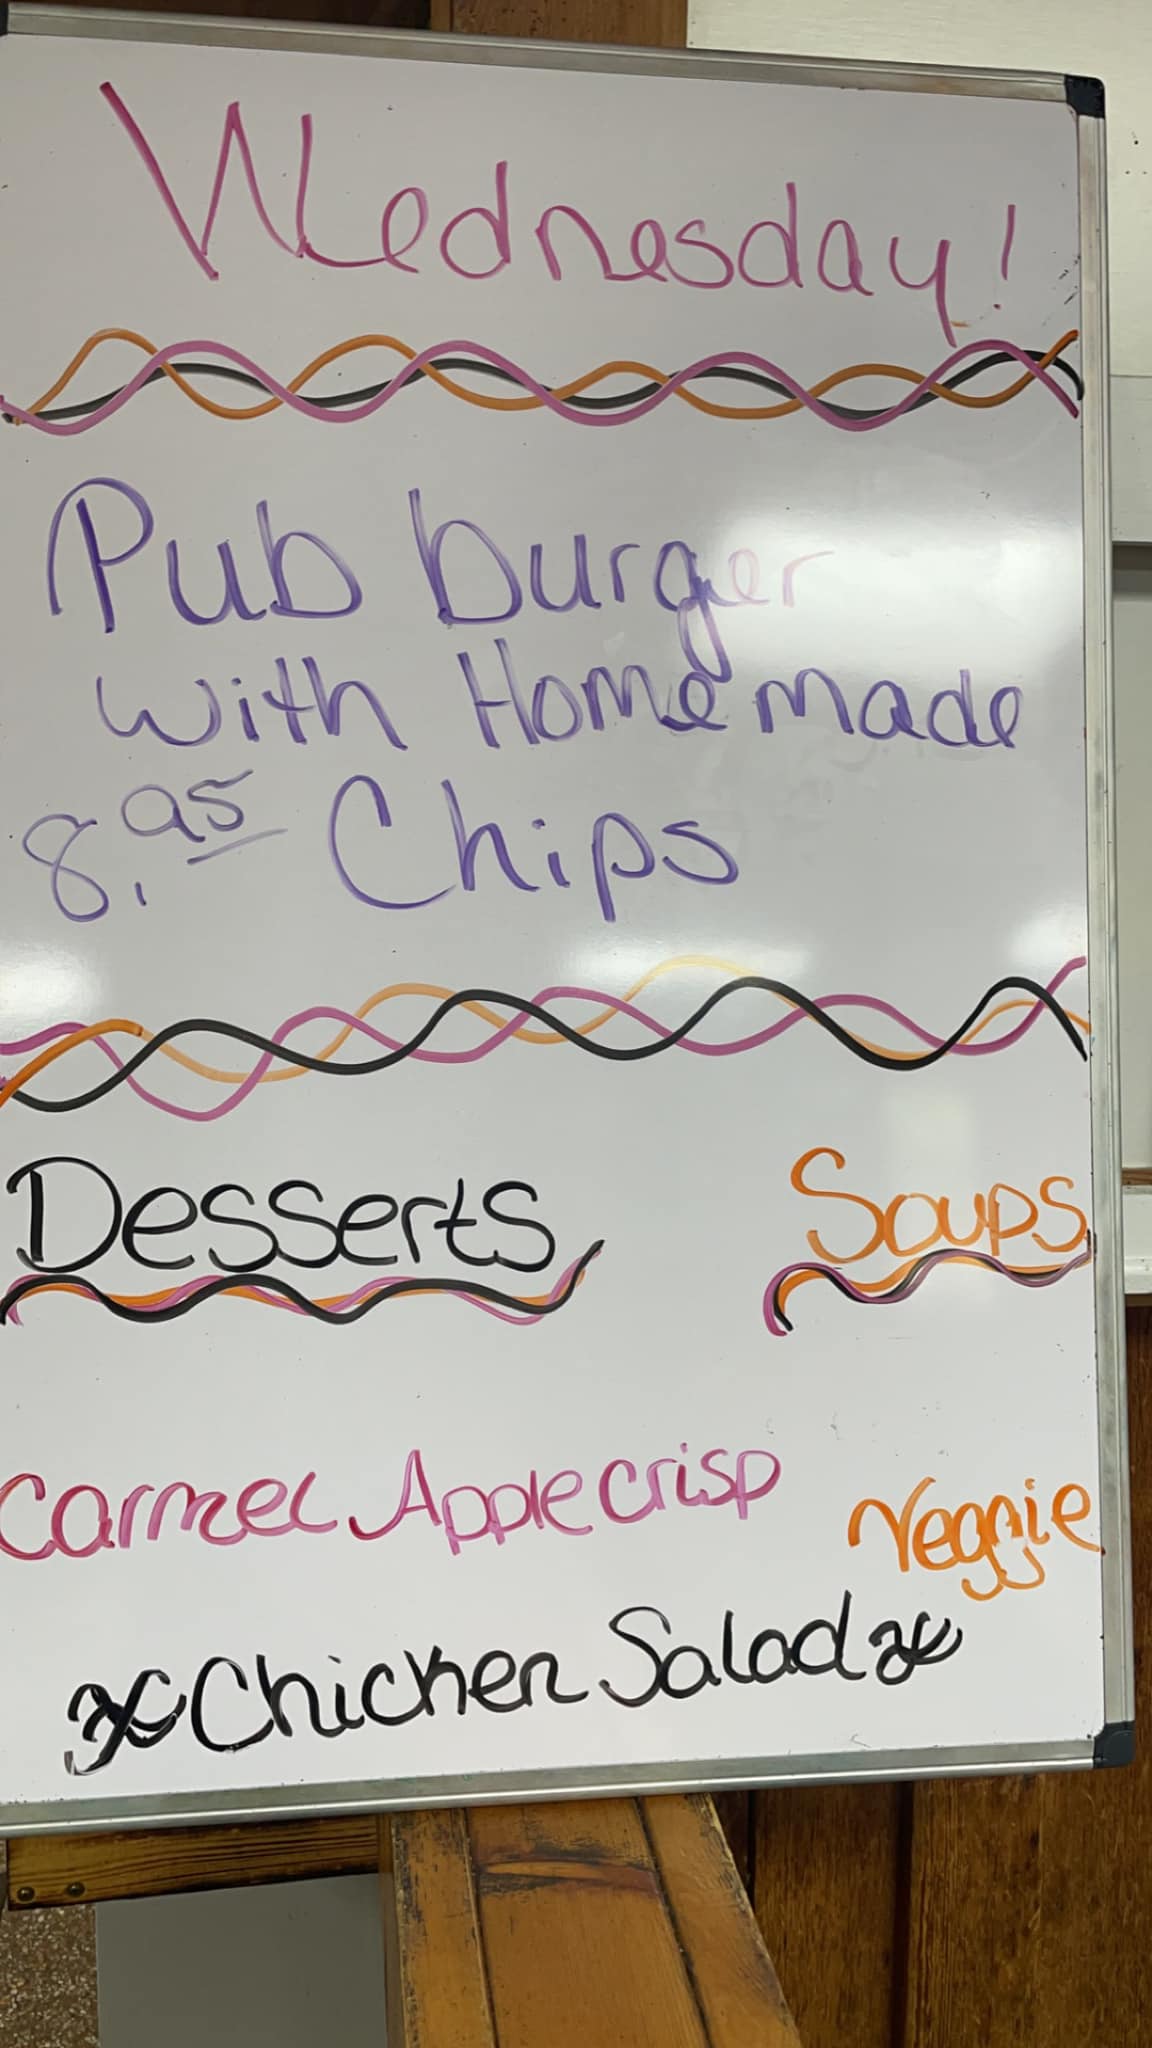 Wednesday!
Pub burger
with Homemade
8.95 Chips
Desserts Soups
Carmel Apple crisp Veggie
Chicken Salad